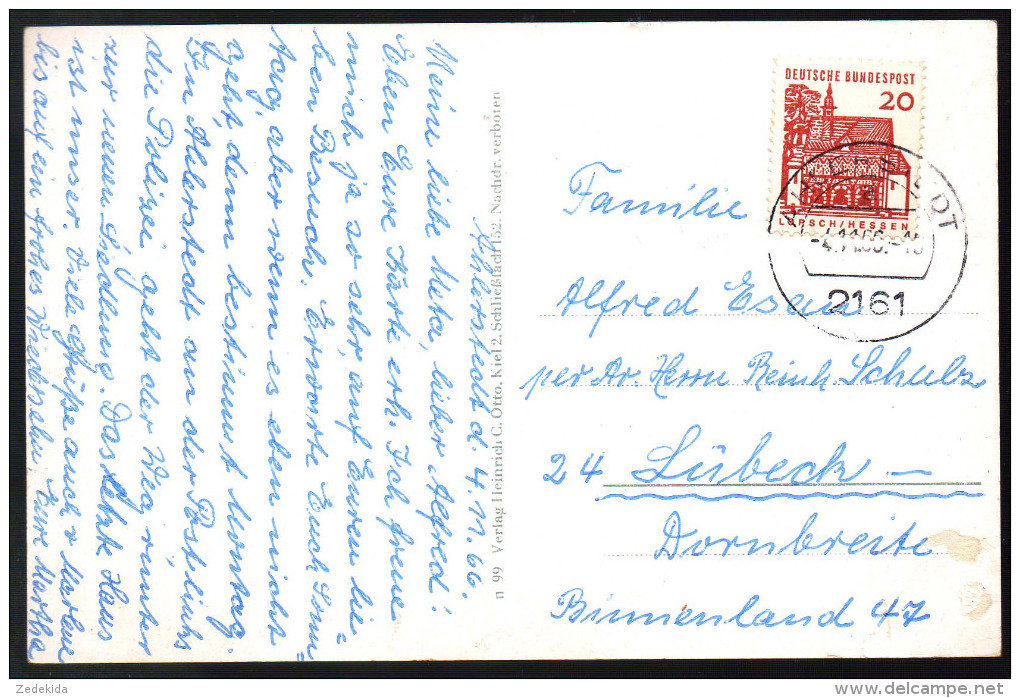 Ahlerstedt d. 4.11.66.
Meine liebe Meta, lieber Alfred!
Eben Eure Karte erh. Ich freue
mich ja so sehr, auf Euren lie=
ben Besuch. Erwarte Euch Sonn=
tag, aber wenn es eben nicht
geht, dann bestimmt Montag.
In Ahlerstedt an der Post, links
die Polizei, geht der Weg runter
zur neuen Siedlung. Das letzte Haus
ist unser. Viele Grüße auch v. Marlene
bis auf ein frohes Wiedersehn Eure Martha
n 99 Verlag Heinrich C. Otto, Kiel 2, Schließfach 152. Nachdr. verboten
DEUTSCHE BUNDESPOST
20
LORSCH/HESSEN
AHLERSTEDT
-4.11.66.
2161
Familie
Alfred Esau
per Adr. Herrn Reinh. Schulz
24 Lübeck –
Dornbreite
Binnenland 47
Zedekida
delcampe.net